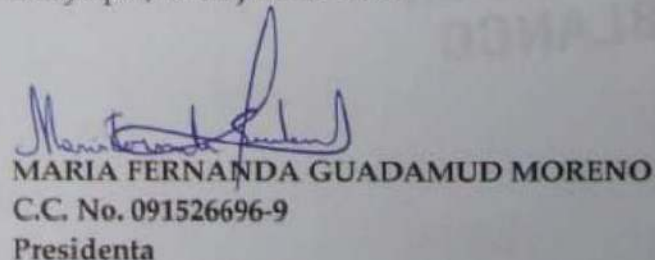 MARIA FERNANDA GUADAMUD MORENO
C.C. No. 091526696-9
Presidenta